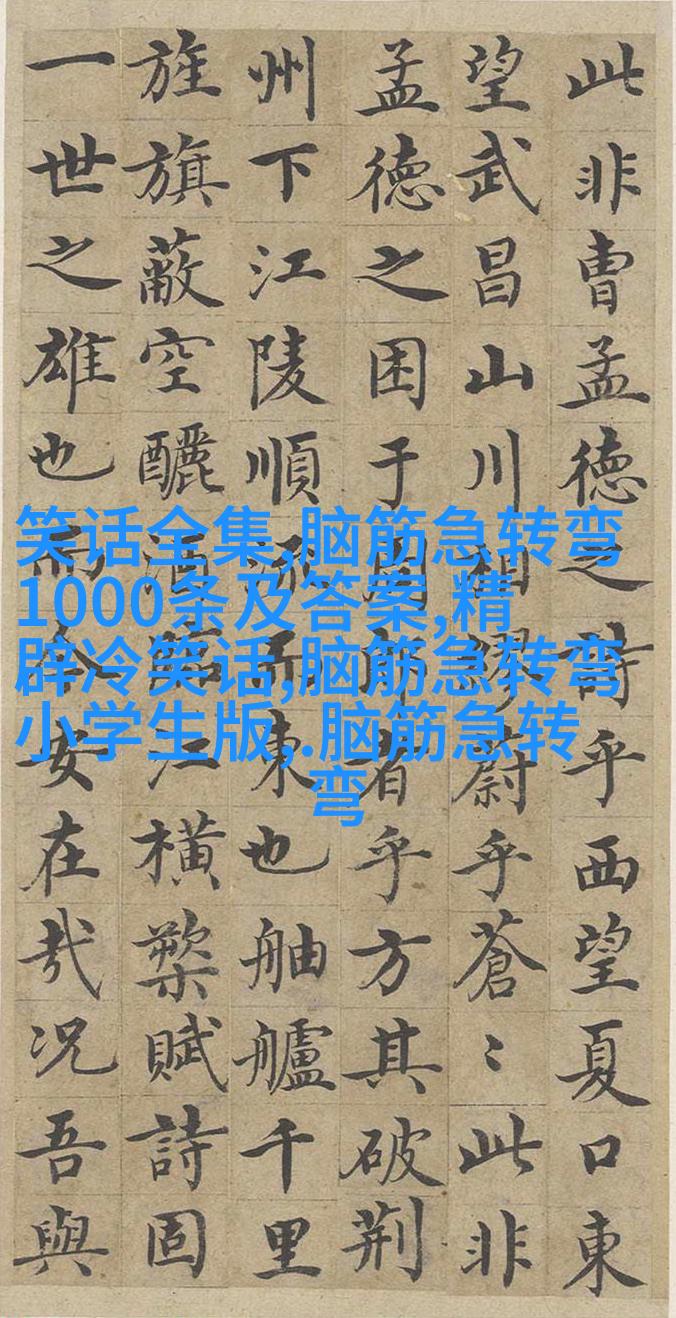 此非曹孟德之詩乎西望夏口東
望武昌山川相繆蔚乎蒼〻此非
孟德之困于周郎者乎方其破荆
州下江陵順流而東也舳艫千里
旌旗蔽空釃酒臨江橫槊賦詩固
一世之雄也而今安在哉况吾與
笑话全集,脑筋急转弯
1000条及答案,精
辟冷笑话,脑筋急转弯
小学生版,.脑筋急转
弯